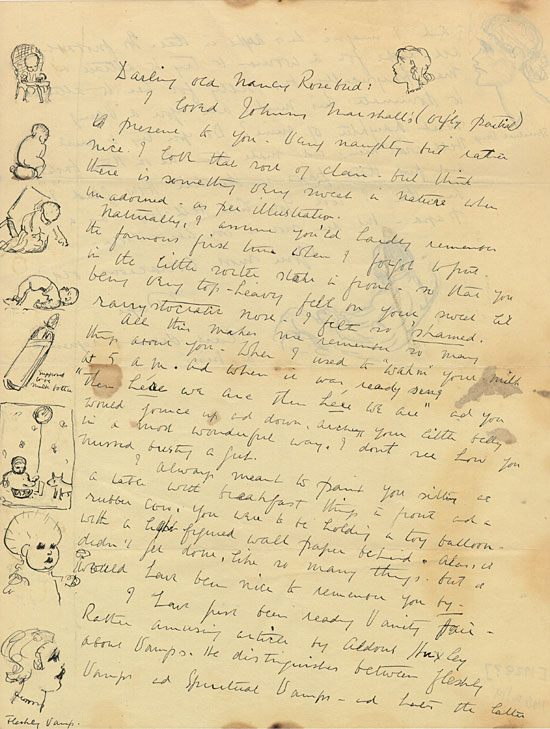 Darling old Nancy Rosebud:
I loved Johnny Marshall's
present to you. Very naughty but rather
nice. I look that sort of but think
there is something very sweet in nature when
unadorned - as per illustration.
Naturally, I assume you'd hardly remember
the famous first time when I forgot to put
in the little stick in front - so that you
being very top-heavy fell on your sweet lil
rarrystocratic nose. I felt so 'shamed.
All this makes me remember so many
things about you. When I used to "wahm" your milk
at 5 a.m. ad when it was ready sing
"then here we are then here we are" ad you
would jounce up ad down, your little belly
in a most wonderful way. I don't see how you
missed busting a gut.
I always meant to paint you sitting at
a table with breakfast things in front ad a
rubber cow. You were to be holding a toy balloon -
with a figured wall paper behind. Alas, it
didn't get done, like so many things - but it
would have been nice to remember you by -
I have just been reading Vanity Fair -
Rather amusing article by Aldous Huxley
about Vamps. He distinguishes between Fleshly
Vamps ad Spiritual Vamps - ad the latter
supposed to be milk bottle
Fleshly Vamp.